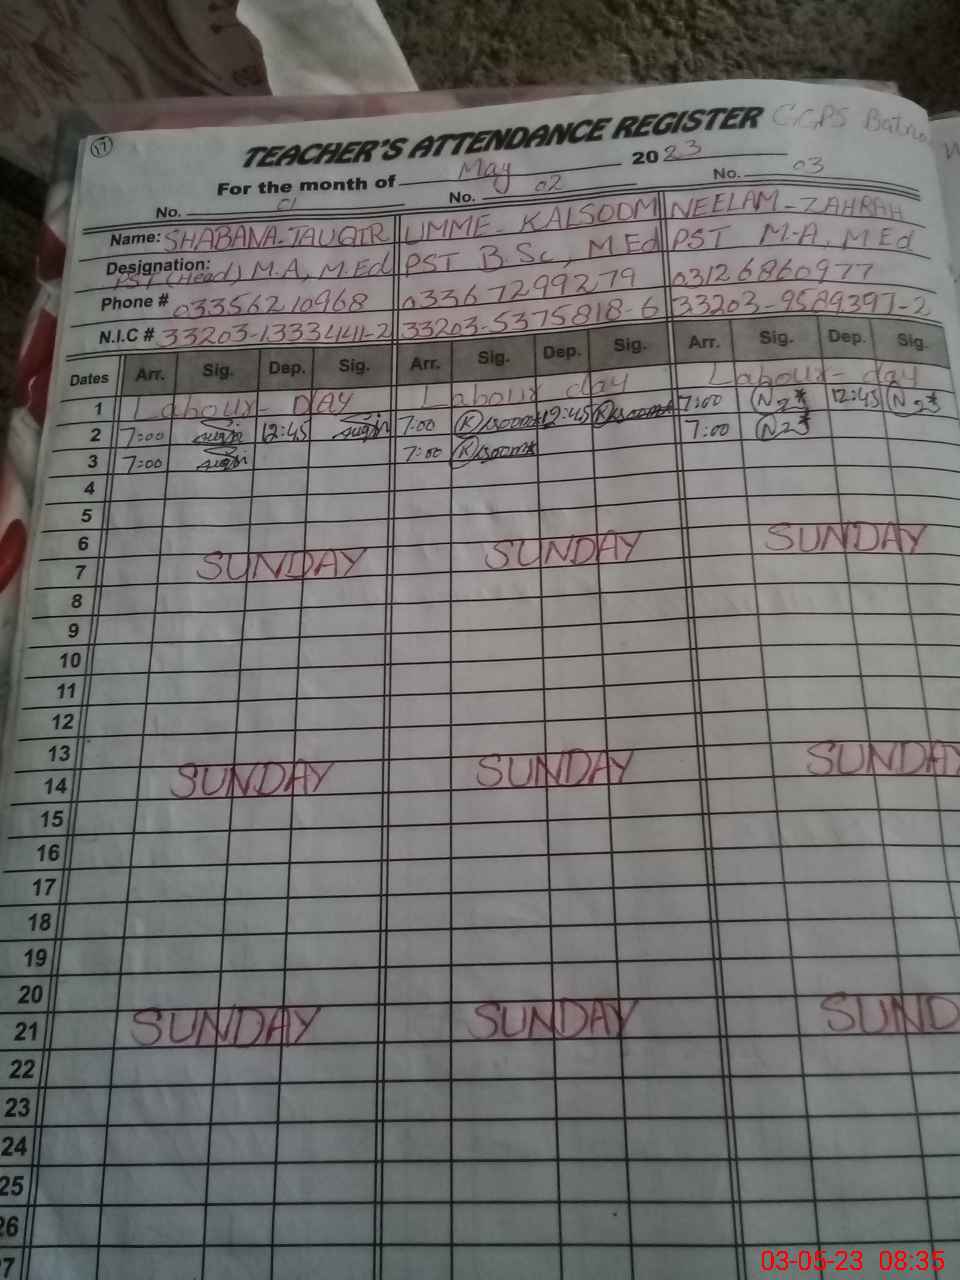 17
TEACHER'S ATTENDANCE REGISTER
For the month of May 2023
No. 01 No. 02 No. 03
Name: SHABANA-TAUQIR UMME-KALSOOM NEELAM-ZAHRAH
Designation: PST (Head) M.A, M.Ed PST B.Sc, M.Ed PST M.A, M.Ed
Phone # 03356210968 03367299279 03126860977
N.I.C # 33203-1333441-2 33203-5375818-6 33203-9589397-2
Dates Arr. Sig. Dep. Sig. Arr. Sig. Dep. Sig. Arr. Sig. Dep. Sig.
1 Labour-DAY Labour day Labour-day
2 7:00 12:45 7:00 12:45 7:00 12:45
3 7:00 7:00 7:00
4
5
6
7 SUNDAY SUNDAY SUNDAY
8
9
10
11
12
13
14 SUNDAY SUNDAY SUNDAY
15
16
17
18
19
20
21 SUNDAY SUNDAY SUND
22
23
24
25
26
7
03-05-23 08:35